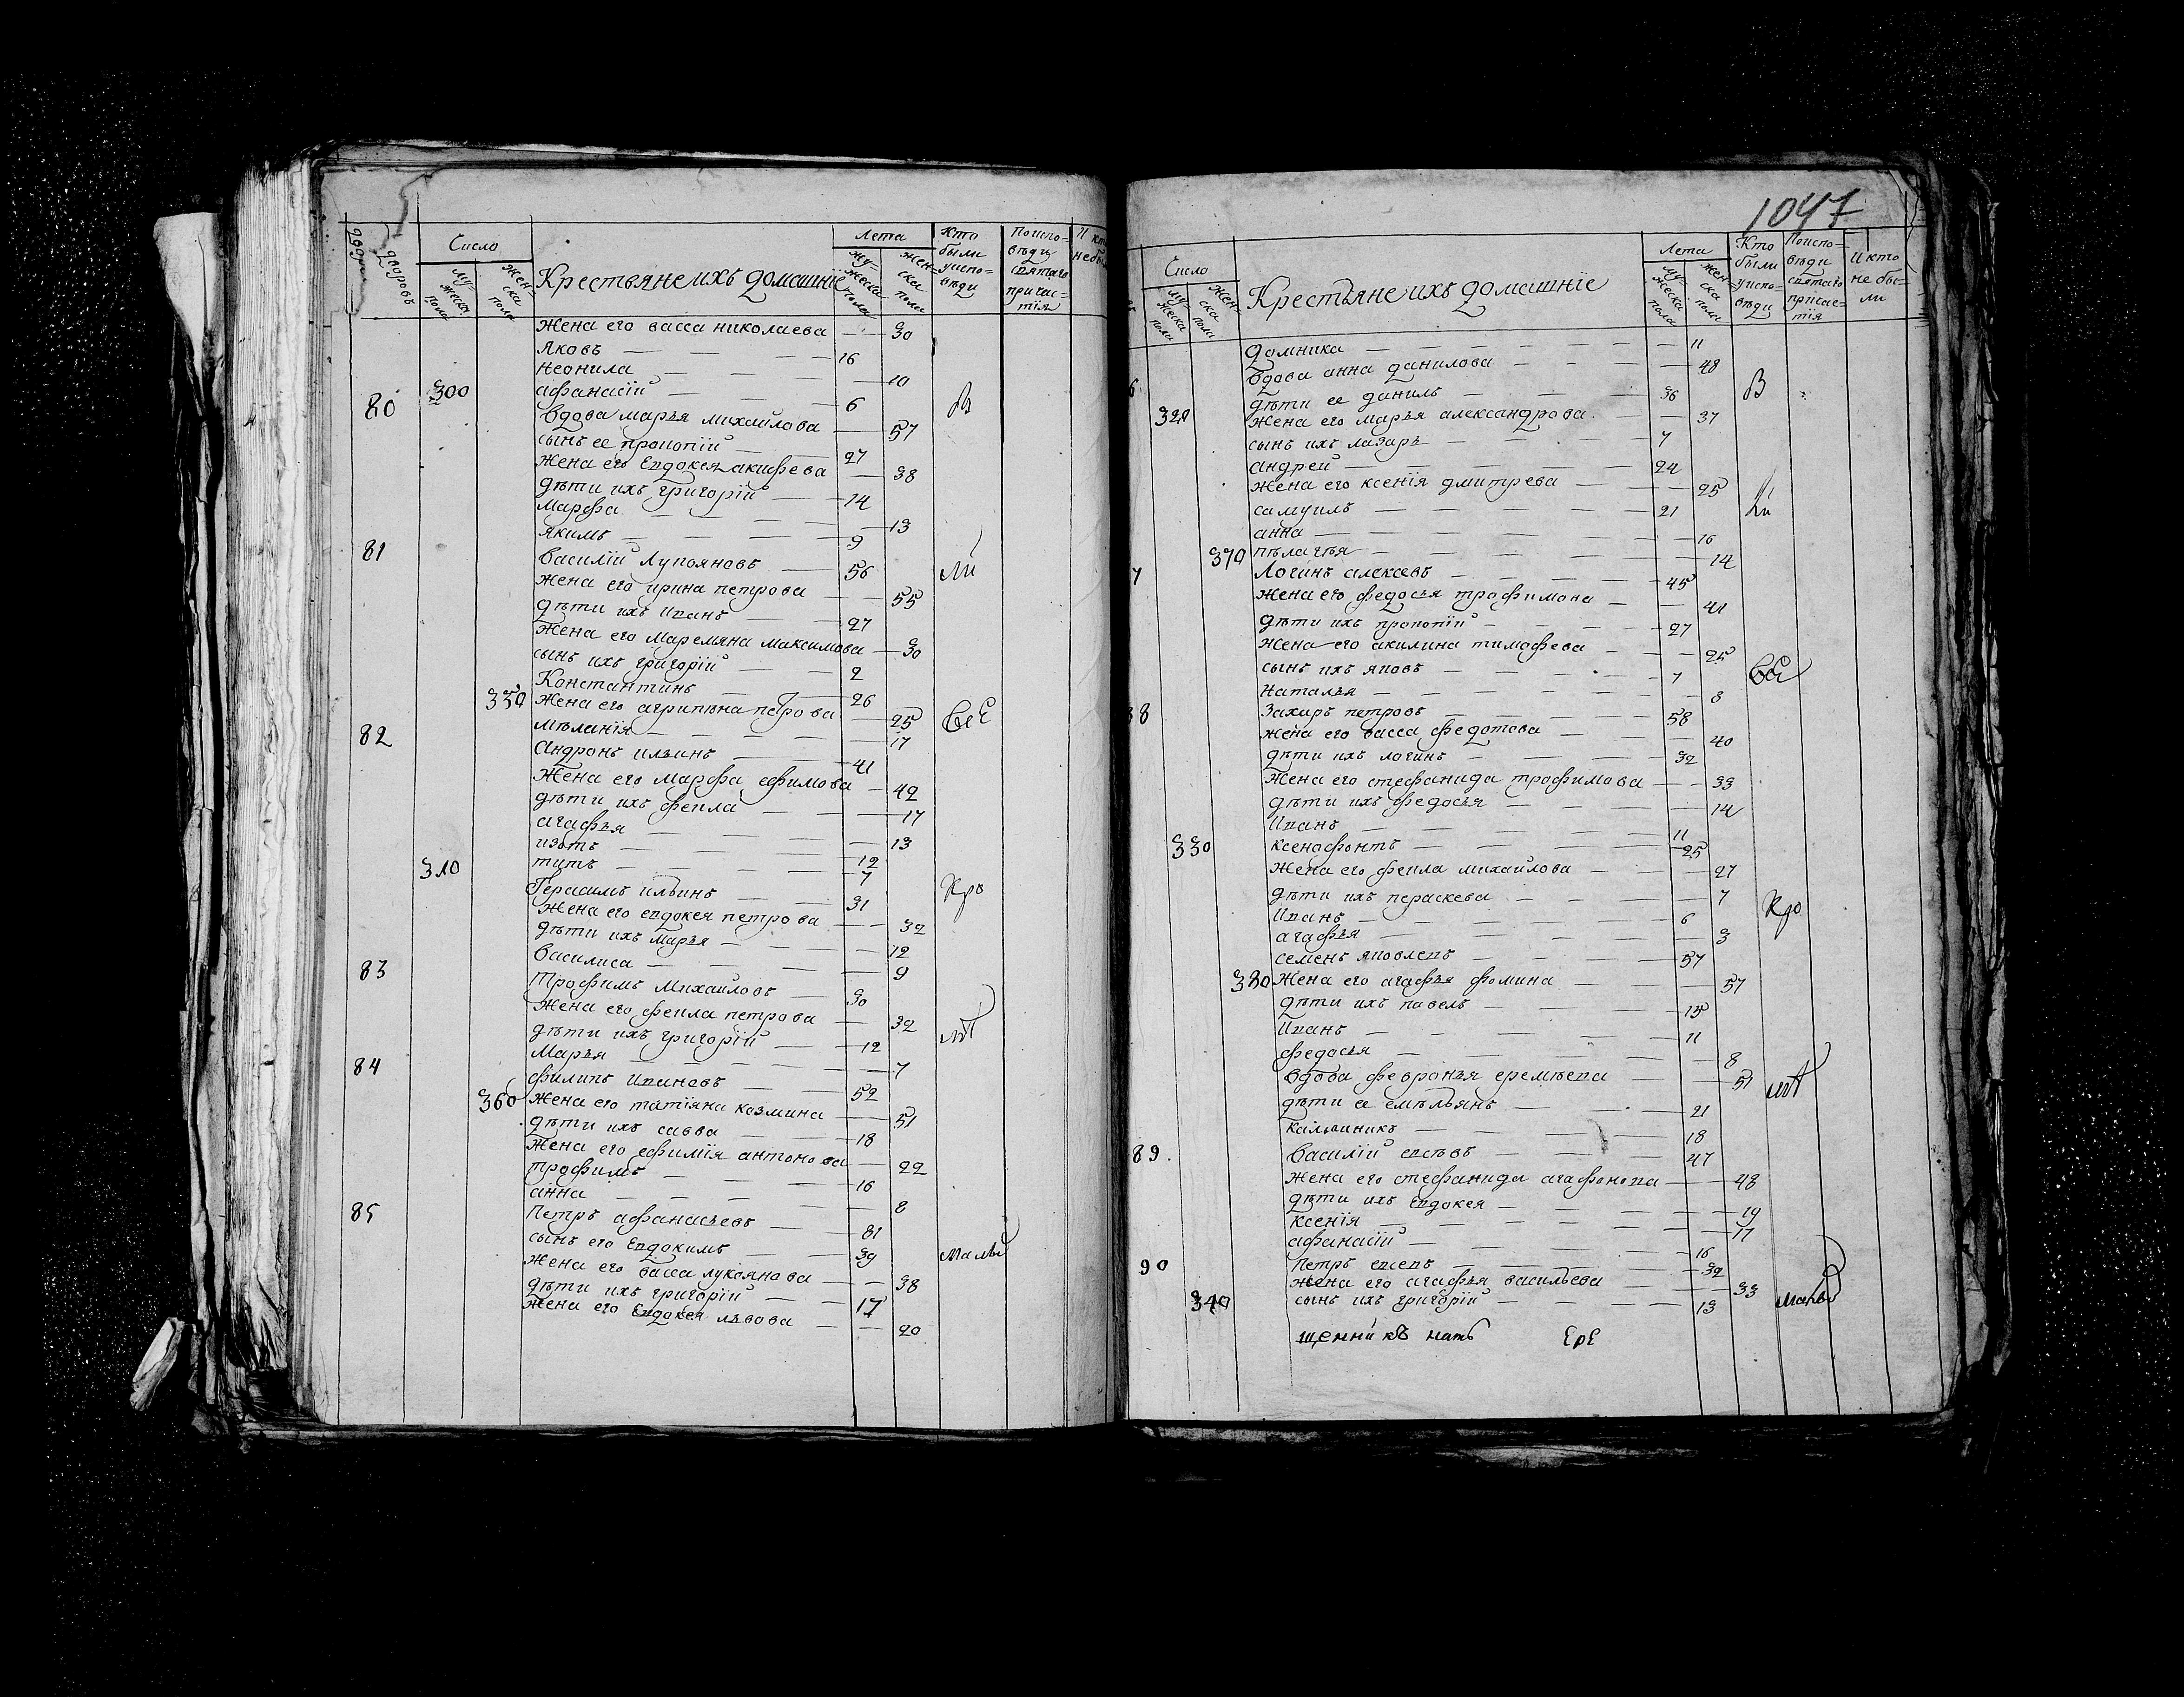 Число
Лета
Кто были уиспо=вѣди
Поиспо=вѣди святаго причас=тїя
дворовъ
му=жеска пола
жен=ска пола
Крестьяне ихъ домашнїе
му=жеска пола
жен=ска пола
Жена его васса николаева — 30
Яковъ — 16
Неонила — 10
300 афанасїй — 6
80 Вдова марья михайлова — 57 В
сынъ ее прокопїй — 27
Жена его Евдокея акифева — 38
дѣти ихъ григорїй — 14
Марфа — 13
якимъ — 9
81 Василїй Лукояновъ — 56 ли
жена его ирина петрова — 55
дѣти ихъ иванъ — 27
Жена его Маремяна максимова — 30
сынъ ихъ григорїй — 2
Константинъ — 26
350 Жена его агрипѣна петрова — 25 всЕ
мѣланїя — 17
82 Андронъ ильинъ — 41
Жена его марфа ефимова — 42
дѣти ихъ фекла — 17
агафья — 13
изотъ — 12
310 титъ — 7
Герасимъ ильинъ — 31 Кро
Жена его евдокея петрова — 32
дѣти ихъ марья — 12
Василиса — 9
83 Трофимъ Михайловъ — 30
Жена его фекла петрова — 32
дѣти ихъ григорїй — 12
Марья — 7
84 филипъ ивановъ — 52
360 Жена его татїяна козмина — 51
дѣти ихъ савва — 18
Жена его ефимїя антонова — 22
трофимъ — 16
анна — 8
85 Петръ афанасьевъ — 81
сынъ его Евдокимъ — 39
Жена его васса лукоянова — 38
дѣти ихъ григорїй — 17
Жена его Евдокея львова — 20
1047
Число
Лета
Кто были уиспо=вѣди
Поиспо=вѣди святаго причас=тїя
И кто не бы=ли
му=жеска пола
жен=ска пола
Крестьяне ихъ домашнїе
му=жеска пола
жен=ска пола
домника — 11
6 Вдова анна данилова — 48 В
дѣти ее данилъ — 36
320 Жена его марья александрова — 37
сынъ ихъ лазаръ — 7
андрей — 24
жена его ксенїя дмитрева — 25
самуилъ — 21
анна — 16
370 пѣлагѣя — 14
7 Логинъ алексевъ — 45
жена его федосья трофимова — 41
дѣти ихъ прокопїй — 27
жена его акилина тимофева — 25
сынъ ихъ яковъ — 7
наталья — 8
88 Захаръ петровъ — 58
жена его васса федотова — 40
дѣти ихъ логинъ — 32
Жена его стефанида трофимова — 33
дѣти ихъ федосья — 14
Иванъ — 11
330 ксенофонтъ — 25
жена его фекла михайлова — 27
дѣти ихъ параскева — 7
Иванъ — 6 Кро
агафья — 3
семенъ яковлевъ — 57
380 Жена его агафья фомина — 57
дѣти ихъ павелъ — 15
Иванъ — 11
федосья — 8
вдова февронья еремѣева — 51
дѣти ее емѣльянъ — 21
Калинникъ — 18
89 Василїй евсѣвъ — 47
жена его стефанида агафонова — 48
дѣти ихъ Евдокея — 19
ксенїя — 17
афанасїй — 16
90 Петръ евсевъ — 32
жена его агафья васильева — 33
340 сынъ ихъ григорїй — 13
щенникъ ЕрЕ